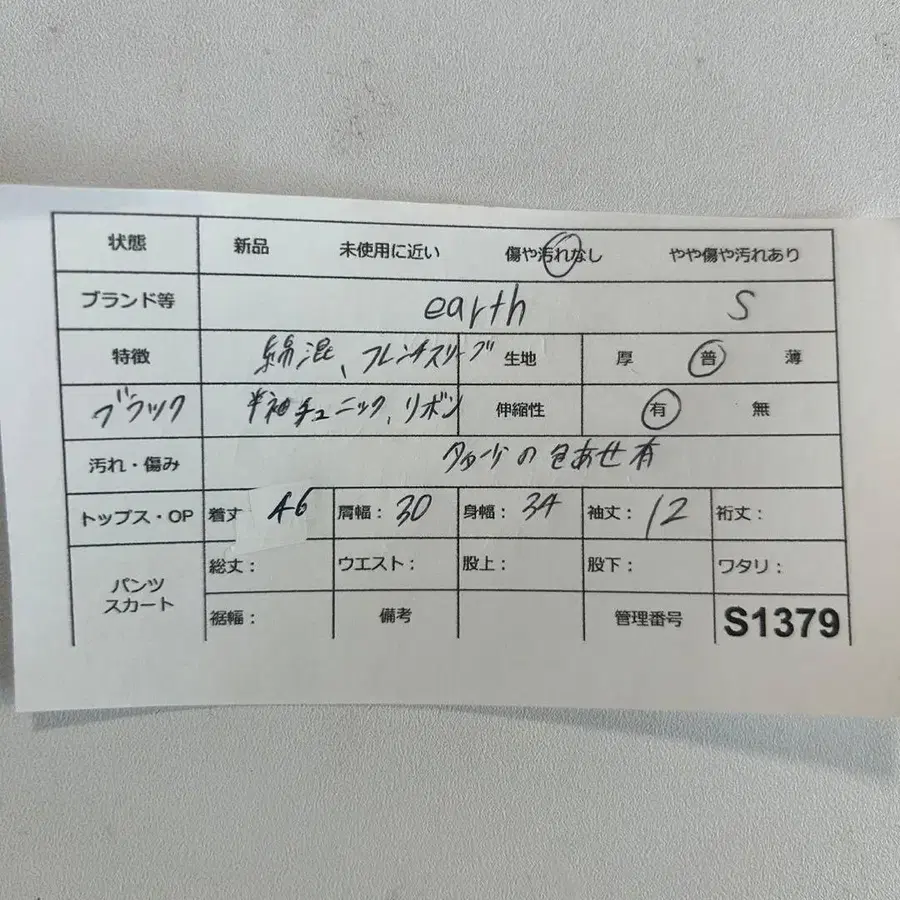 状態 新品 未使用に近い 傷や汚れなし やや傷や汚れあり
ブランド等 earth S
特徴 綿混、フレンチスリーブ 生地 厚 普 薄
ブラック 半袖チュニック、リボン 伸縮性 有 無
汚れ・傷み 多少の色あせ有
トップス・OP 着丈 46 肩幅: 30 身幅: 34 袖丈: 12 裄丈:
パンツ スカート
総丈: ウエスト: 股上: 股下: ワタリ:
裾幅: 備考 管理番号 S1379